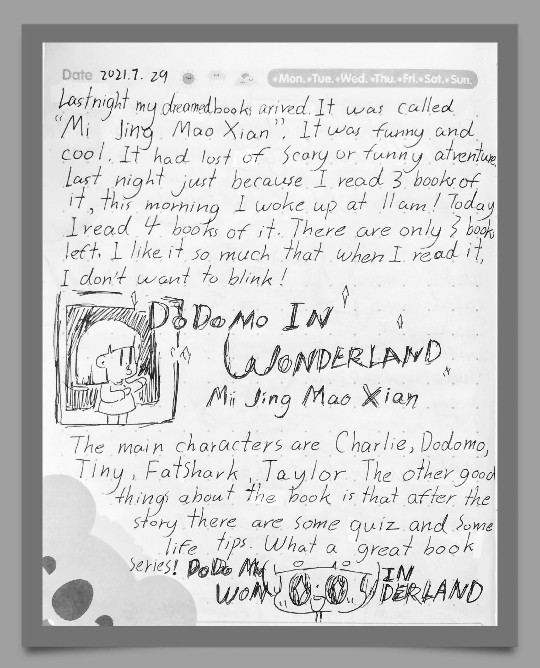 Date 2021.7.29 •Mon.•Tue.•Wed.•Thu.•Fri.•Sat.•Sun.
Last night my dreamed books arived. It was called
"Mi Jing Mao Xian". It was funny and
cool. It had lost of scary or funny atventure.
Last night just because I read 3 books of
it, this morning I woke up at 11am! Today
I read 4 books of it. There are only 3 book
left. I like it so much that when I read it,
I don't want to blink!
DoDoMo IN
WONDERLAND
Mi Jing Mao Xian
The main characters are Charlie, Dodomo,
Tiny, FatShark, Taylor. The other good
things about the book is that after the
story there are some quiz and some
life tips. What a great book
series! DoDo Mo IN
WONDERLAND